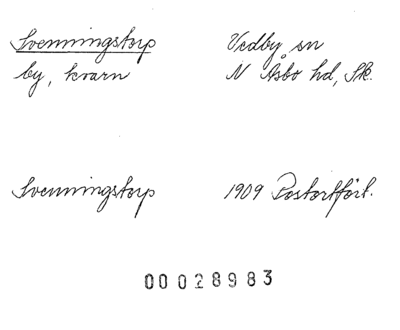 Svenningstorp Vedby sn
by, kvarn N Åsbo hd, Sk.
Svenningstorp 1909 Postortfört.
00028983